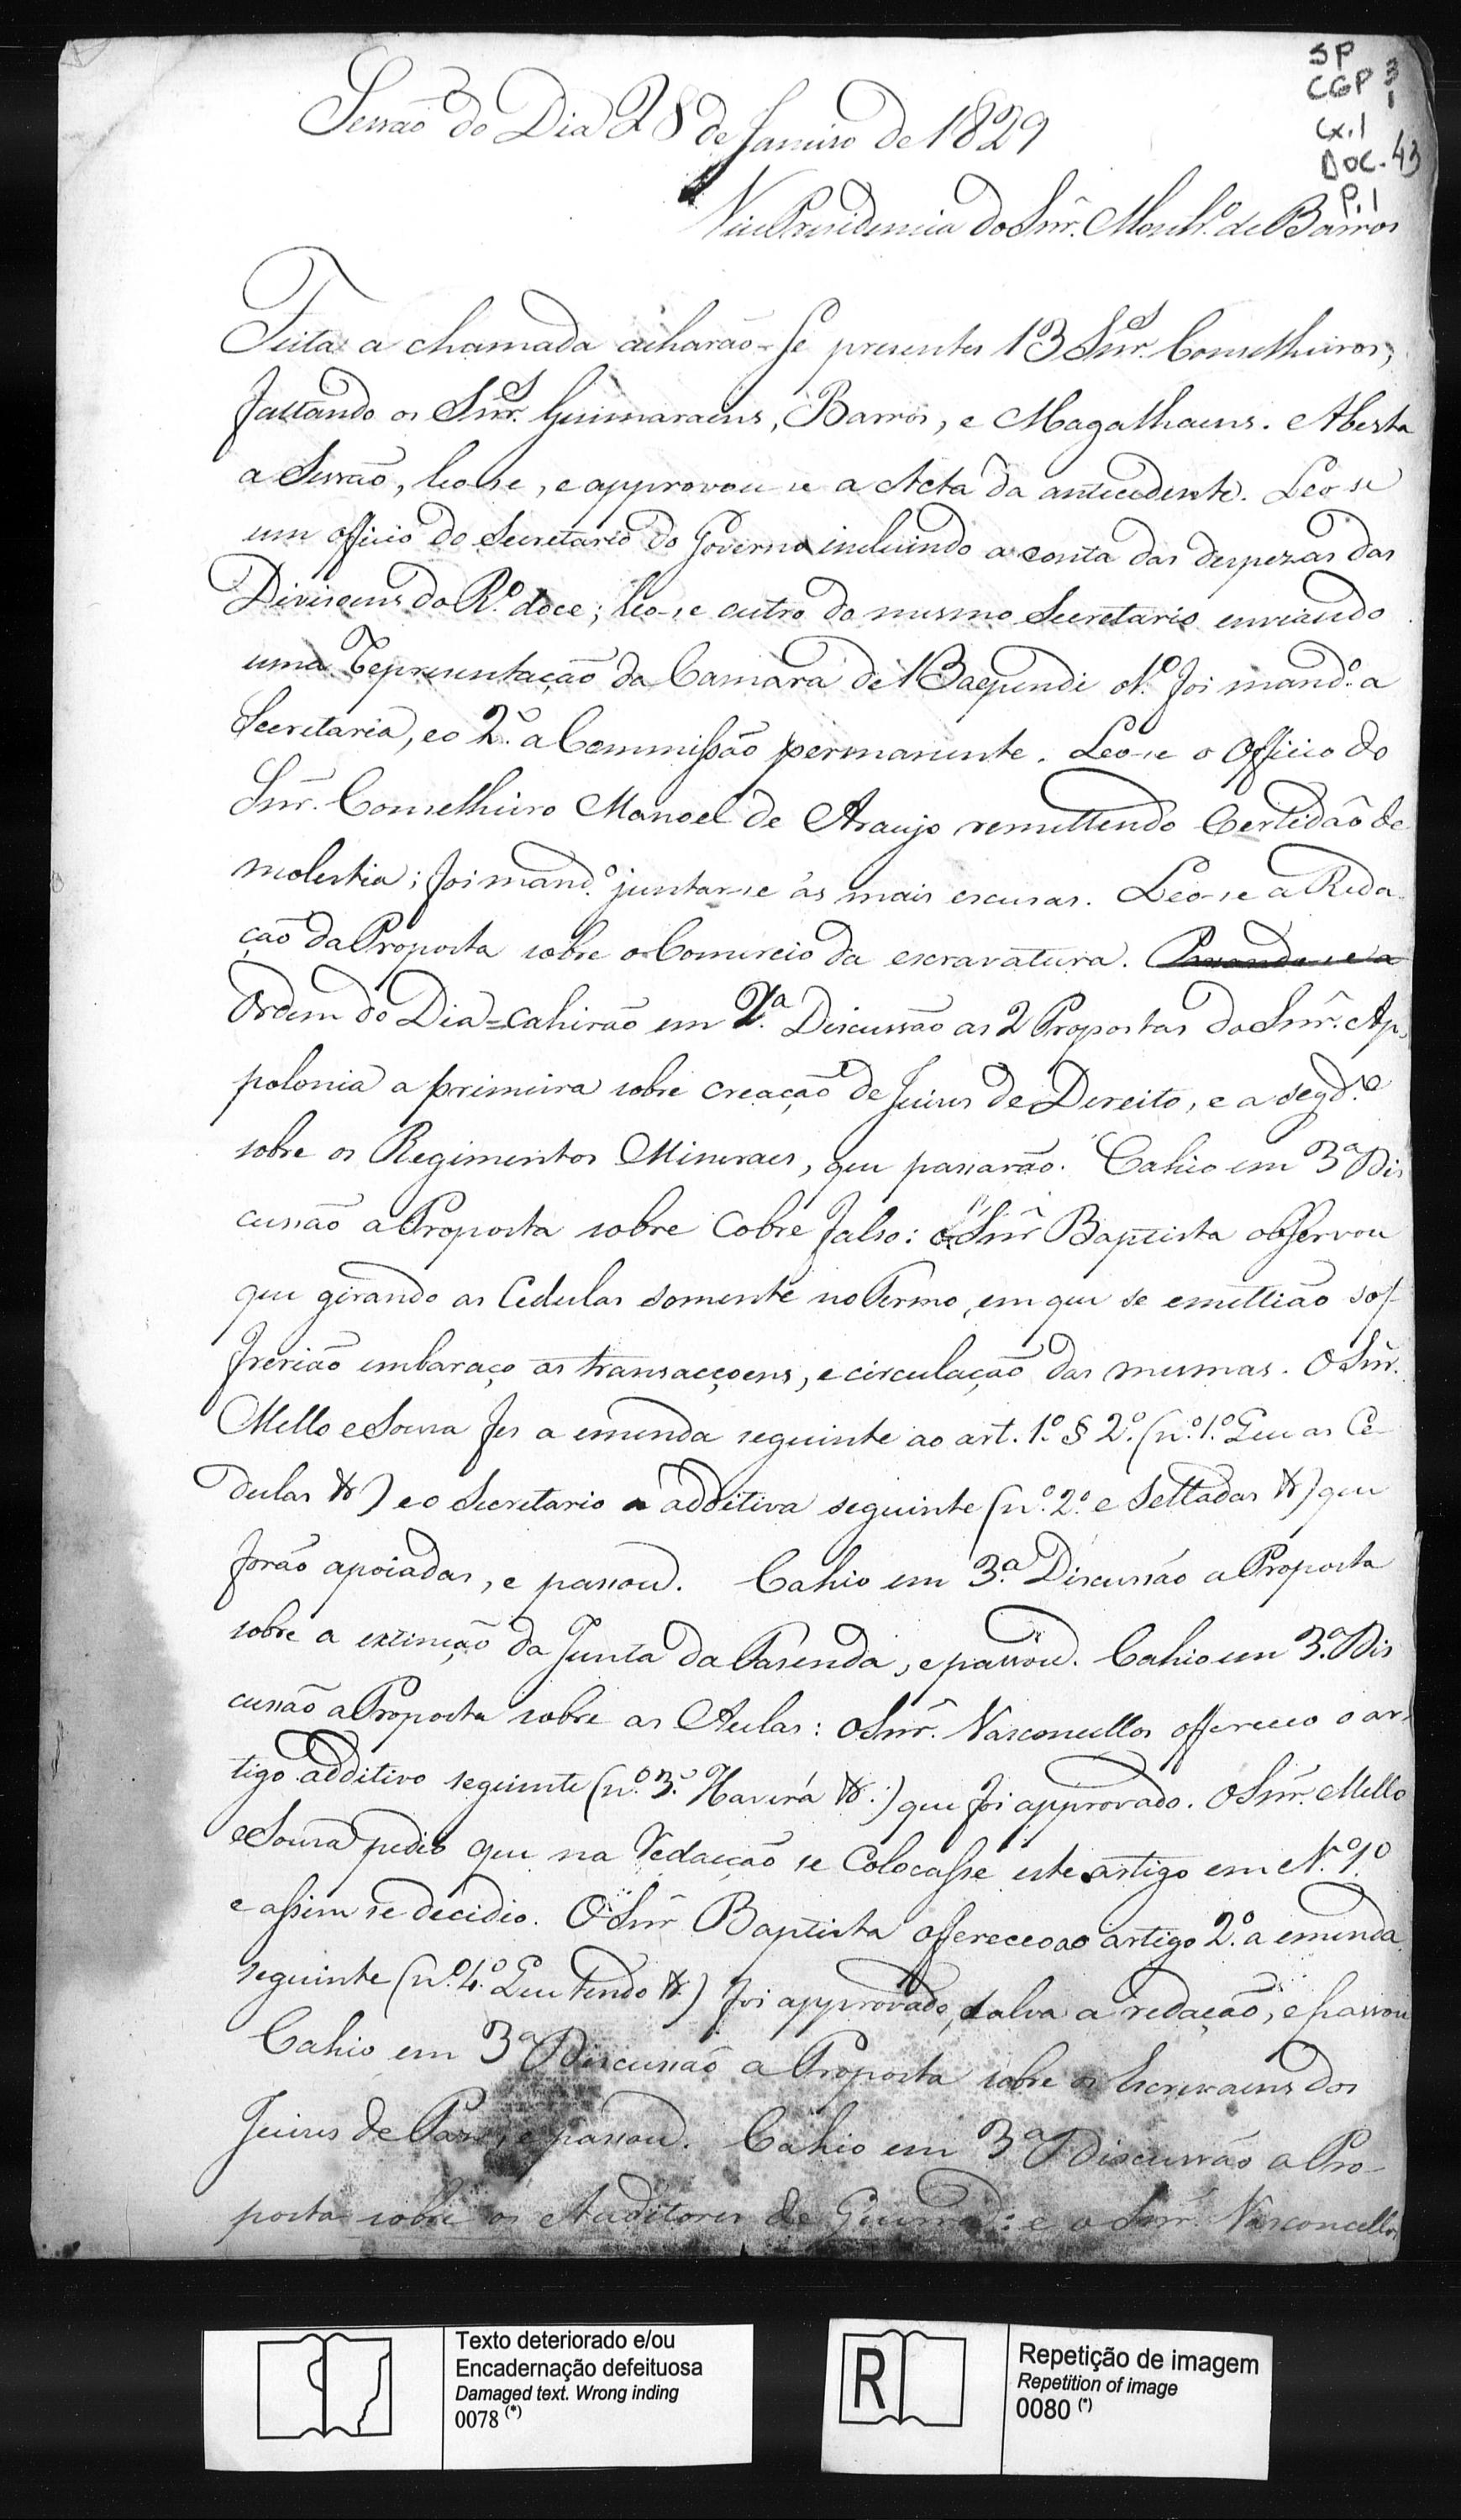 SP
CGP 3
1
Cx.1
DOC. 43
P.1
Sessão do Dia 28 de Janeiro de 1829
Vice Presidencia do Snr. Monh.º de Barros
Feita a chamada acharão-se presentes 13 Snr.es Conselheiros,
faltando os Snr.es Guimaraens, Barros, e Magalhaens. Aberta
a Sessão, leo-se, e approvou-se a Acta da antecedente. Leo-se
um officio do Secretario do Governo incluindo a conta das despezas das
Divisoens do R.º doce; leo-se outro do mesmo Secretario enviando
uma Representação da Camara de Baependi o 1.º foi mand.º a
Secretaria, e o 2.º a Commissão permanente. Leo-se o Officio do
Snr. Conselheiro Manoel de Araujo remettendo Certidão de
molestia; foi mand.º juntar-se ás mais escusas. Leo-se a Reda-
ção da Proposta sobre o Comercio da escravatura. Passando-se a
Ordem do Dia = Cahirão em 2.ª Discussão as 2 Propostas do Snr. Ap-
polonia a primeira sobre creação de Juizes de Dereito, e a segd.ª
sobre os Regimentos Mineraes, que passarão. Cahio em 3.ª Dis
cussão a Proposta sobre Cobre falso: o Snr Baptista observou
que girando as Cedulas somente no Termo, em que se emettião sof-
frerião embaraço as transacçoens, e circulação das mesmas. O Snr.
Mello e Souza fes a emenda seguinte ao art. 1.º § 2.º (n.º 1.º Que as Ce-
dulas &) e o Secretario a additiva seguinte (n.º 2.º e Selladas &) que
forão apoiadas, e passou. Cahio em 3.ª Discussão a Proposta
sobre a extinção da Junta da Fasenda, e passou. Cahio em 3.ª Dis
cussão a Proposta sobre as Aulas: o Snr. Vasconcellos offereceo o ar-
tigo additivo seguinte (n.º 3.º Haverá &.) que foi approvado. O Snr. Mello
e Souza pedio que na Redacção se Colocasse este artigo em N.º 1.º
e assim se decidio. O Snr Baptista offereceo ao artigo 2.º a emenda
seguinte (n.º 4.º Que tendo &.) foi approvado, salva a redação, e passou
Cahio em 3.ª Discussão a Proposta sobre os Escrivaens dos
Juizes de Paz, e passou. Cahio em 3.ª Discussão a Pro-
posta sobre os Auditores de Guerra: e o Snr. Vasconcellos
Texto deteriorado e/ou
Encadernação defeituosa
Damaged text. Wrong inding
0078 (*)
R
Repetição de imagem
Repetition of image
0080 (*)